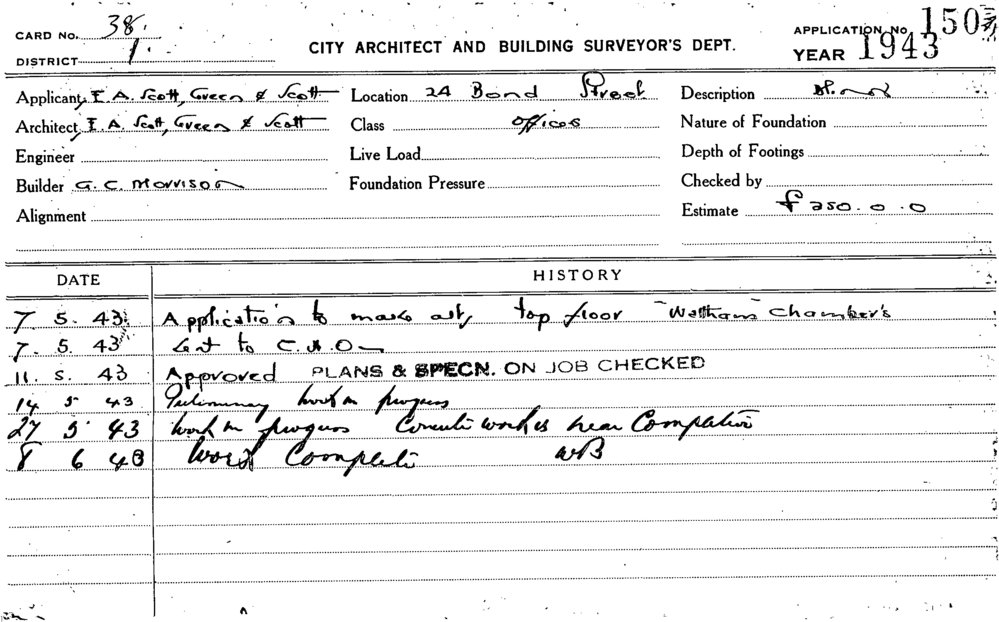 CARD No. 38.
DISTRICT 1.
CITY ARCHITECT AND BUILDING SURVEYOR'S DEPT.
APPLICATION No 150
YEAR 1943
Applicant, E. A. Scott, Green & Scott
Location 24 Bond Street
Description
Architect, E. A. Scott, Green & Scott
Class offices
Nature of Foundation
Engineer
Live Load
Depth of Footings
Builder G. C. Morrison
Foundation Pressure
Checked by
Alignment
Estimate £ 250. 0. 0
DATE HISTORY
7 5. 43 Application to make alts, top floor "Waltham" Chambers
7. 5. 43 Sent to C. H. O
11. 5. 43 Approved PLANS & SPECN. ON JOB CHECKED
14 5 43 Preliminary work in progress
27 5 43 Work in progress work is near Completion
8 6 43 Work Complete WB